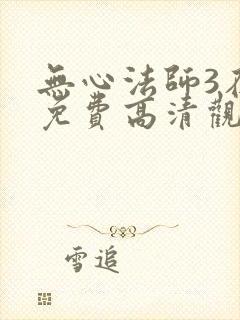 無心法師3
免費高清觀
雪追